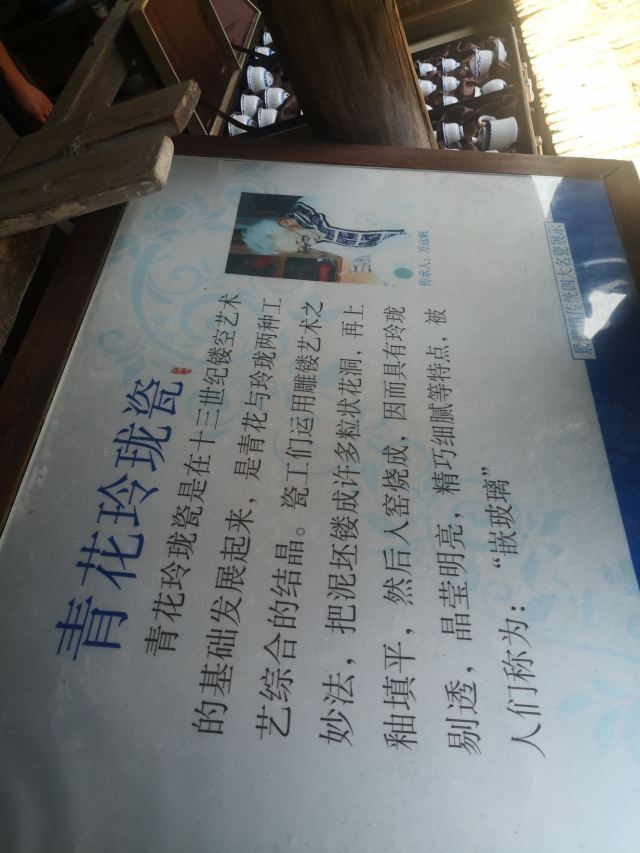 青花玲珑瓷
青花玲珑瓷是在十三世纪镂空艺术
的基础发展起来，是青花与玲珑两种工
艺综合的结晶。瓷工们运用雕镂艺术之
妙法，把泥坯镂成许多粒状花洞，再上
釉填平，然后入窑烧成，因而具有玲珑
剔透，晶莹明亮，精巧细腻等特点，被
人们称为：“嵌玻璃”
传承人：
传统四大名瓷展示